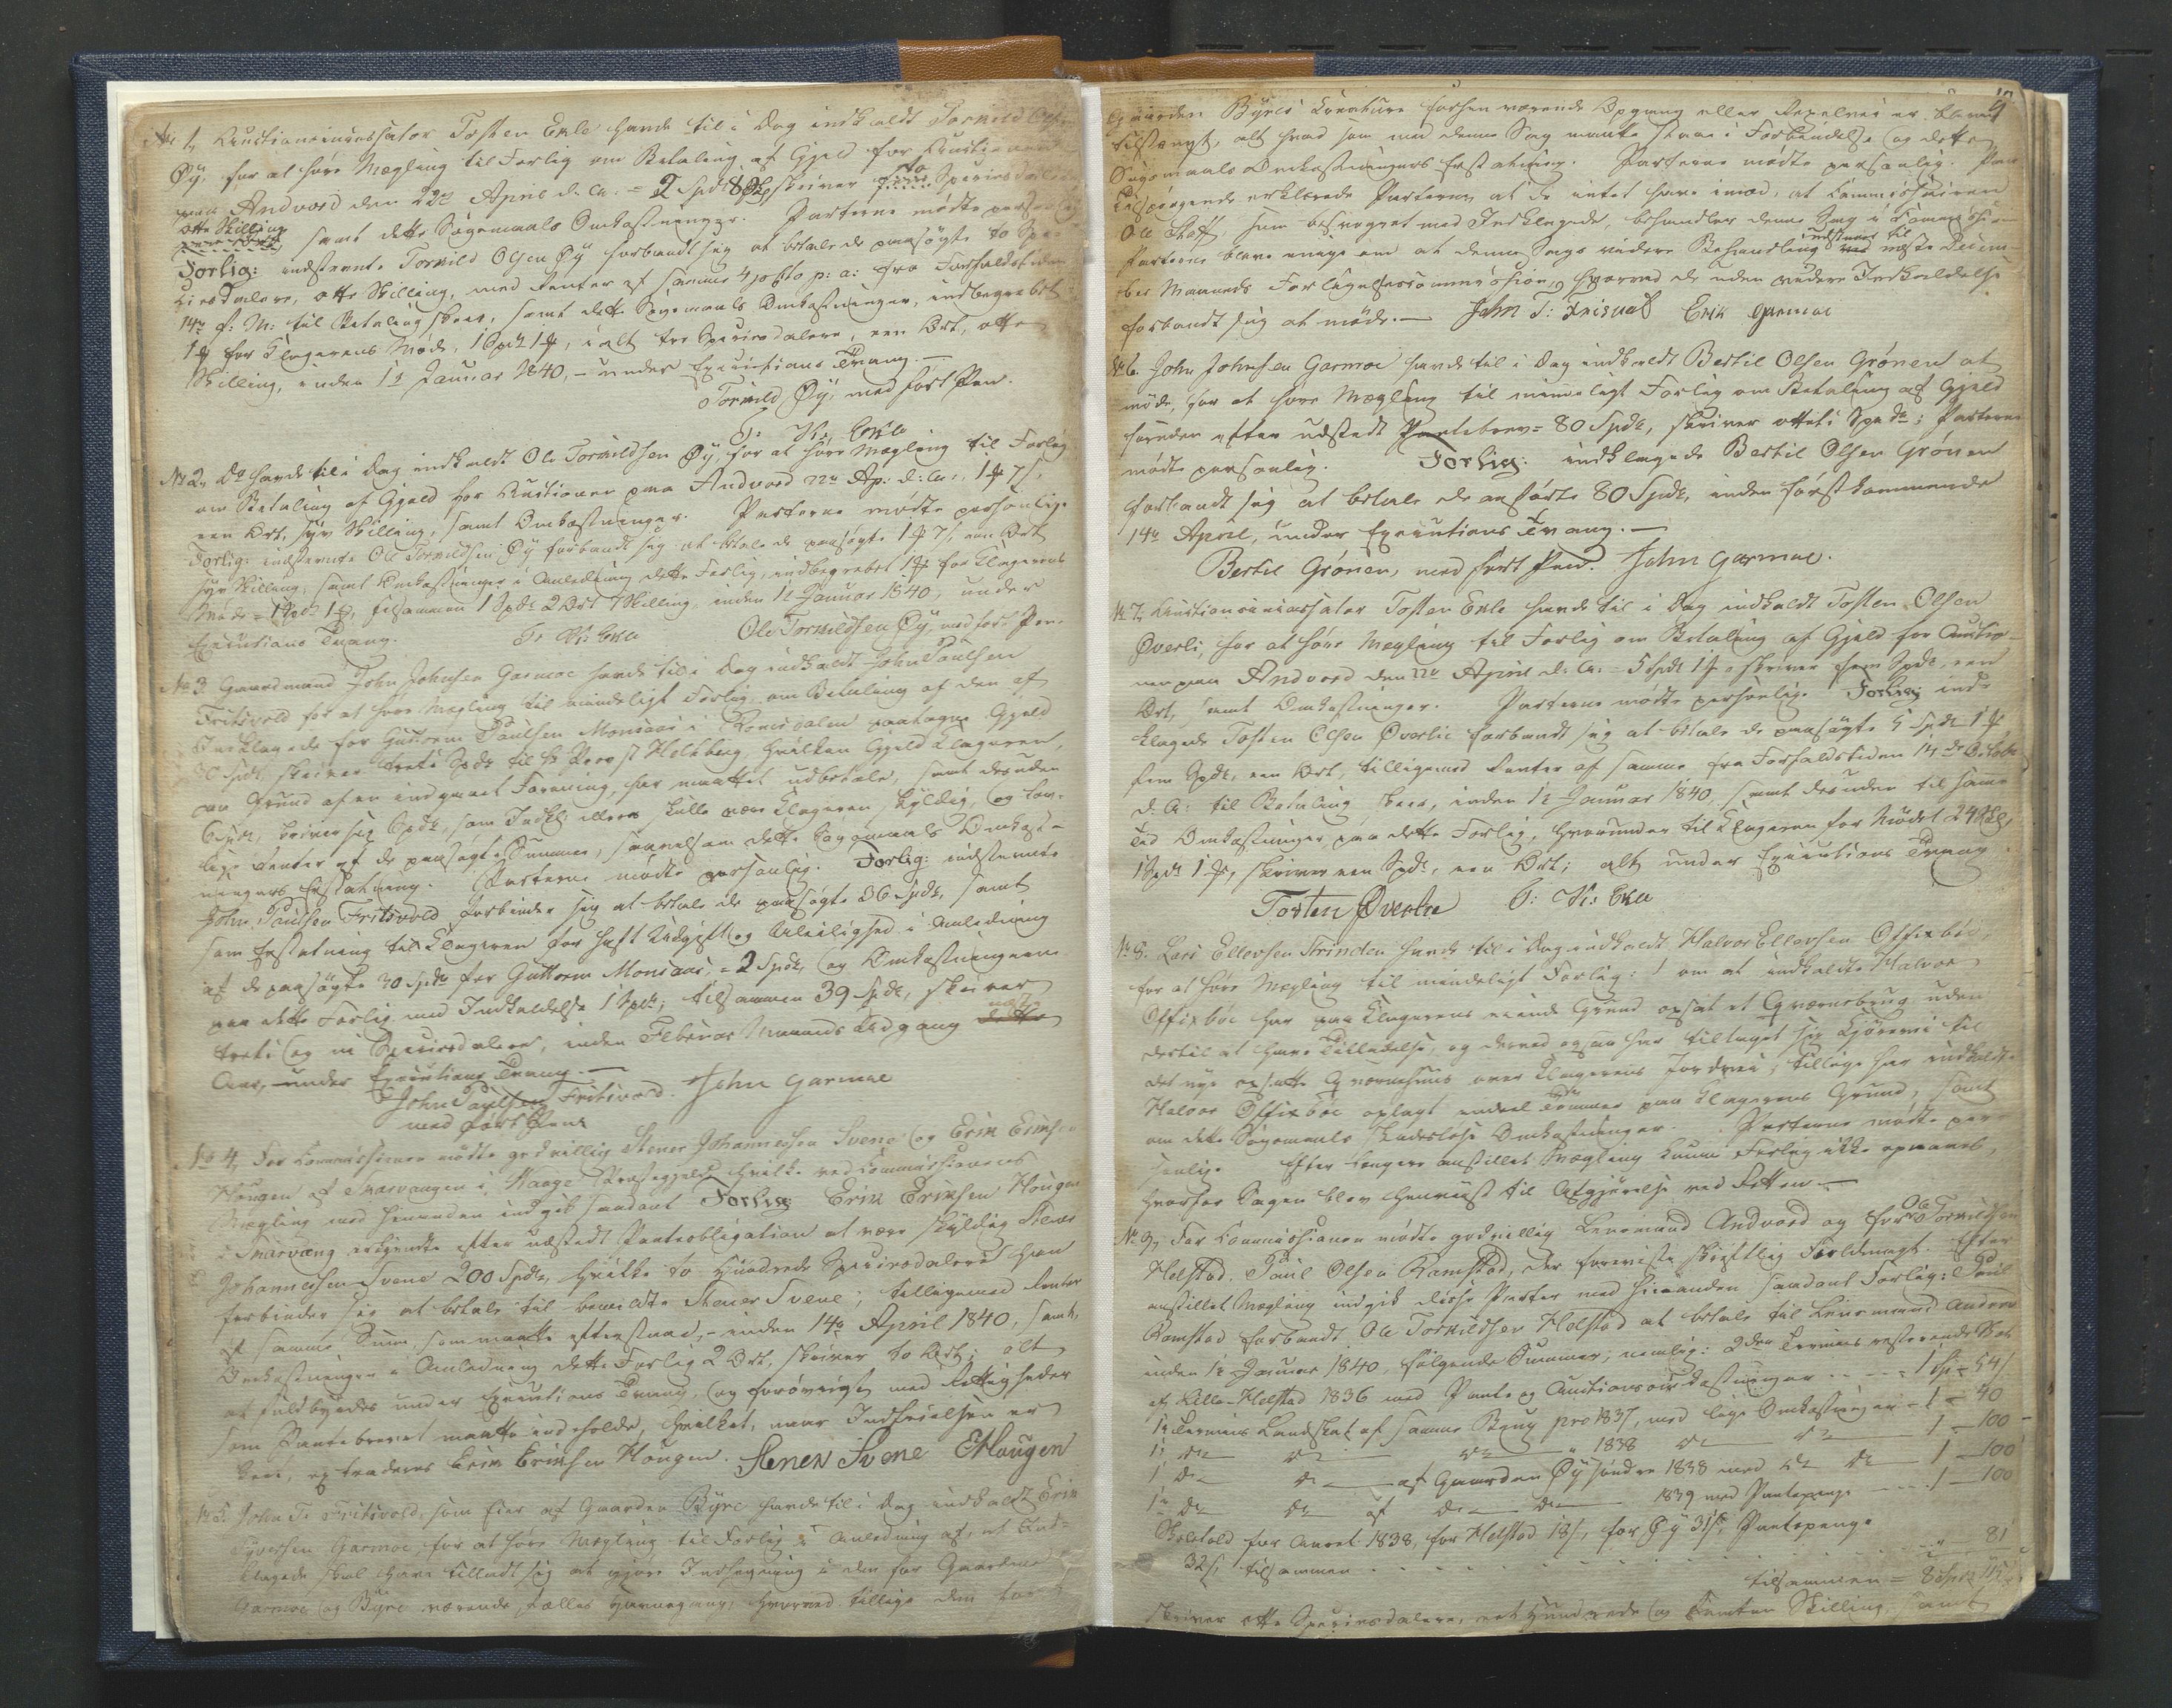 No 1, Auctionsincassator Tosten Ekle havde til i Dag indkaldt Torkild Olsen
Øy, for at høre Mægling til Forlig om Betaling af Gjeld for Auctionen
paa Andvord den 22de April d. A. = 2 Spd 8 s, skriver to Speciesdaler
otte Skilling samt dette Søgemaals Omkostninger. Parterne mødte personlig
Forlig: indstevnte Torkild Olsen Øy forbandt sig at betale de paasøgte to Spe-
ciesdalere, otte Skilling, med Renter af samme 4 pro Cto p: a: fra Forfaldstiden
14de f: M: til Betaling skeer, samt dette Søgemaals Omkostninger, indbegrebet
1 # for Klagerens Møde, 1 Spd 1 #, i alt tre Speciesdalere, een Ort, otte
Skilling, inden 1te Januar 1840, – under Executions Tvang. —
Torkild Øy, med ført Pen.
T: K: Ekle
No 2, Do havde til i Dag indkaldt Ole Torkildsen Øy, for at høre Mægling til Forlig
om Betaling af Gjeld for Auctionen paa Andvord 22de Ap: d: A: 1 # 7 s,
een Ort, syv Skilling, samt Omkostninger. Parterne mødte personlig.
Forlig: indstevnte Ole Torkildsen Øy forbandt sig at betale de paasøgte 1 # 7 s, een Ort
syv Skilling, samt Omkostninger i Anledning dette Forlig, indbegrebet 1 # for Klagerens
Møde = 1 Spd 1 #, tilsammen 1 Spd 2 Ort 7 Skilling, inden 1te Januar 1840, under
Executions Tvang. T: K: Ekle Ole Torkildsen Øy, med ført Pen.
No 3. Gaardmand John Johnsen Garmoe havde til i Dag indkaldt John Paulsen
Fritsvold for at høre Mægling til mindeligt Forlig om Betaling af den af
Indklagede for Guttorm Paulsen Monsaas i Romsdalen paatagne Gjeld
30 Spd, skriver treti Spd til Hr Provst Holtberg, hvilken Gjeld Klageren,
paa Grund af en indgaaet Forening, har maattet udbetale, samt desuden
6 Spd, skriver sex Spd, som Indkl: ellers skulle være Klageren skyldig, og lov-
lige Renter af de paasøgte Summer, saavelsom dette Søgemaals Omkost-
ningers Erstatning. Parterne mødte personlig. Forlig: indstevnte
John Paulsen Fritsvold forbinder sig at betale de paasøgte 36 Spd, samt
som Erstatning til Klageren for havt Udgift og Uleilighed i Anledning
af de paasøgte 30 Spd for Guttorm Monsaas, = 2 Spd, og Omkostningerne
paa dette Forlig med Indkaldelse 1 Spd; tilsammen 39 Spd, skriver
treti og ni Speciesdalere, inden Februar Maaneds Udgang næste
Aar, under Executions Tvang. —
John Paulsen Fritsvold. John Garmoe
med ført Pen
No 4, For Commissionen mødte godvillig Stener Johannessen Svene og Erik Eriksen
Hougen af Skarvangen i Vaage Præstegjeld hvilke ved Commissionens
Mægling med hinanden indgik saadant Forlig: Erik Eriksen Hougen
i Skarvang erkjendte efter udstedt Panteobligation at være skyldig Stener
Johannessen Svene 200 Spd, hvilke to Hundrede Speciesdalere han
forbinder sig at betale til bemeldte Stener Svene; tilligemed Renter
af samme Sum, som maatte efterstaae, – inden 14de April 1840, samt
Omkostninger i Anledning dette Forlig 2 Ort, skriver to Ort; alt
at fuldbyrdes under Executions Tvang, og forøvrigt med Rettigheder
som Pantebrevet maatte indeholde, hvilket, naar Indfrielsen er
skeet, extraderes Erik Eriksen Hougen. Stener Svene EHougen
No 5. John T. Fritsvold, som Eier af Gaarden Byre havde til i Dag indkaldt Erik
Syversen Garmoe, for at høre Mægling til Forlig i Anledning af, at Ind-
klagede skal have tilladt sig at gjøre Indhegning i den for Gaardene
Garmoe og Byre værende fælles Havnegang, hvorved tillige den for
Gaarden Byres Creature forhen værende Opgang eller Rexelvei er bleven
tilstængt, alt hvad som med denne Sag maatte staae i Forbindelse og dette
Søgemaals Omkostningers Erstatning. Parterne mødte personlig. Paa
Tilspørgende erklærede Parterne at de intet have imod, at Commissairen
Ole Staff, som besvogret med Indklagede, behandler denne Sag i Commission
Parterne bleve enige om at denne Sags videre Behandling udstaaer til næste Decem-
ber Maaneds Forligelsescommission, hvorved de uden videre Indkaldelse
forbandt sig at møde. — John T: Frisvold Erik Garmoe
No 6. John Johnsen Garmoe havde til i Dag indkaldt Bertil Olsen Grønen at
møde, for at høre Mægling til mindeligt Forlig om Betaling af Gjeld
herunder efter udstedt Pantebrev = 80 Spd, skriver otteti Spd; Parterne
mødte personlig. Forlig: indklagede Bertil Olsen Grønen
forbandt sig at betale de anførte 80 Spd, inden førstkommende
14de April, under Executions Tvang. —
Bertil Grønen, med ført Pen. John Garmoe.
No 7, Auctionsincassator Tosten Ekle havde til i Dag indkaldt Tosten Olsen
Øverli, for at høre Mægling til Forlig om Betaling af Gjeld for Auctio-
nen paa Andvord den 22de April d. A: = 5 Spd 1 #, skriver fem Spd, een
Ort, samt Omkostninger. Parterne mødte personlig. Forlig: ind-
klagede Tosten Olsen Øverlie forbandt sig at betale de paasøgte 5 Spd 1 #,
fem Spd, een Ort, tilligemed Renter af samme fra Forfaldstiden 14de October
d. A: til Betaling skeer, inden 1te Januar 1840, samt desuden til samme
Tid Omkostninger paa dette Forlig, hvorunder til Klageren for Mødet 24 s,
1 Spd 1 #, skriver een Spd, een Ort; alt under Executions Tvang
Torsten Øverlie T: K: Ekle
No 8. Lars Ellevsen Strinden havde til i Dag indkaldt Halvor Ellevsen Offixbøe
for at høre Mægling til mindeligt Forlig: 1 om at indkaldte Halvor
Offixbøe har paa Klagerens eiende Grund opsat et Qværnebrug uden
dertil at have Tilladelse, og derved ogsaa har tiltaget sig Kjørevei til
det nye opsatte Qværnehuus over Klagerens Jordvei, tillige har indkaldte
Halvor Offixbøe oplagt endeel Tømmer paa Klagerens Grund; samt
om dette Søgemaals skadesløse Omkostninger. Parterne mødte per-
sonlig. Efter længere anstillet Mægling kunne Forlig ikke opnaaes,
hvorfor Sagen blev henviist til Afgjørelse ved Retten —
No 9, For Commissionen mødte godvillig Lensmand Andvord og for Ole Torkildsen
Helstad, Paul Olsen Ramstad, der foreviste skriftlig Fuldmagt. Efter
anstillet Mægling indgik disse Parter med hinanden saadant Forlig: Paul
Ramstad forbandt Ole Torkildsen Helstad at betale til Lensmand Andvord
inden 1te Januar 1840, følgende Summer; nemlig: 2den Termins resterende Skat
af Lille-Helstad 1836 med Pante og Auctionsomkostninger . . . 1 Sp – 54 s
1te Termins Landskat af samme Brug pro 1837, med lige Omkostninger – 1 – 40
1te do do do " 1838 do do 1 – 100 –
1 do do af Gaarden Øy søndre 1838 med do do 1 – 100
1te do do af do do 1839 med Pantepenge . . . 1 – 100
Skoletold for Aaret 1838, for Helstad 18 s, for Øy 31 s, Pantepenge
32 s, tilsammen . . . . . . . . . " – 81
tilsammen = 8 Spd 115 s,
skriver otte Speciesdalere, eet Hundrede og femten Skilling, samt